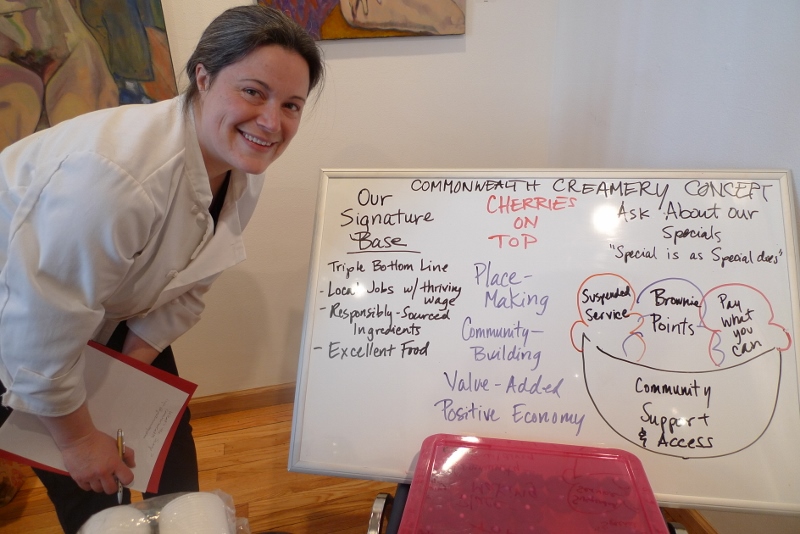 COMMONWEALTH CREAMERY CONCEPT
Our
Signature
Base
Triple Bottom Line
- Local Jobs w/ thriving
wage
- Responsibly-Sourced
Ingredients
- Excellent Food
CHERRIES
ON
TOP
Place-
Making
Community-
Building
Value-Added
Positive Economy
Ask About our
Specials
"Special is as Special does"
Suspended
Service
Brownie
Points
Pay
what
you
can
Community
Support
& Access